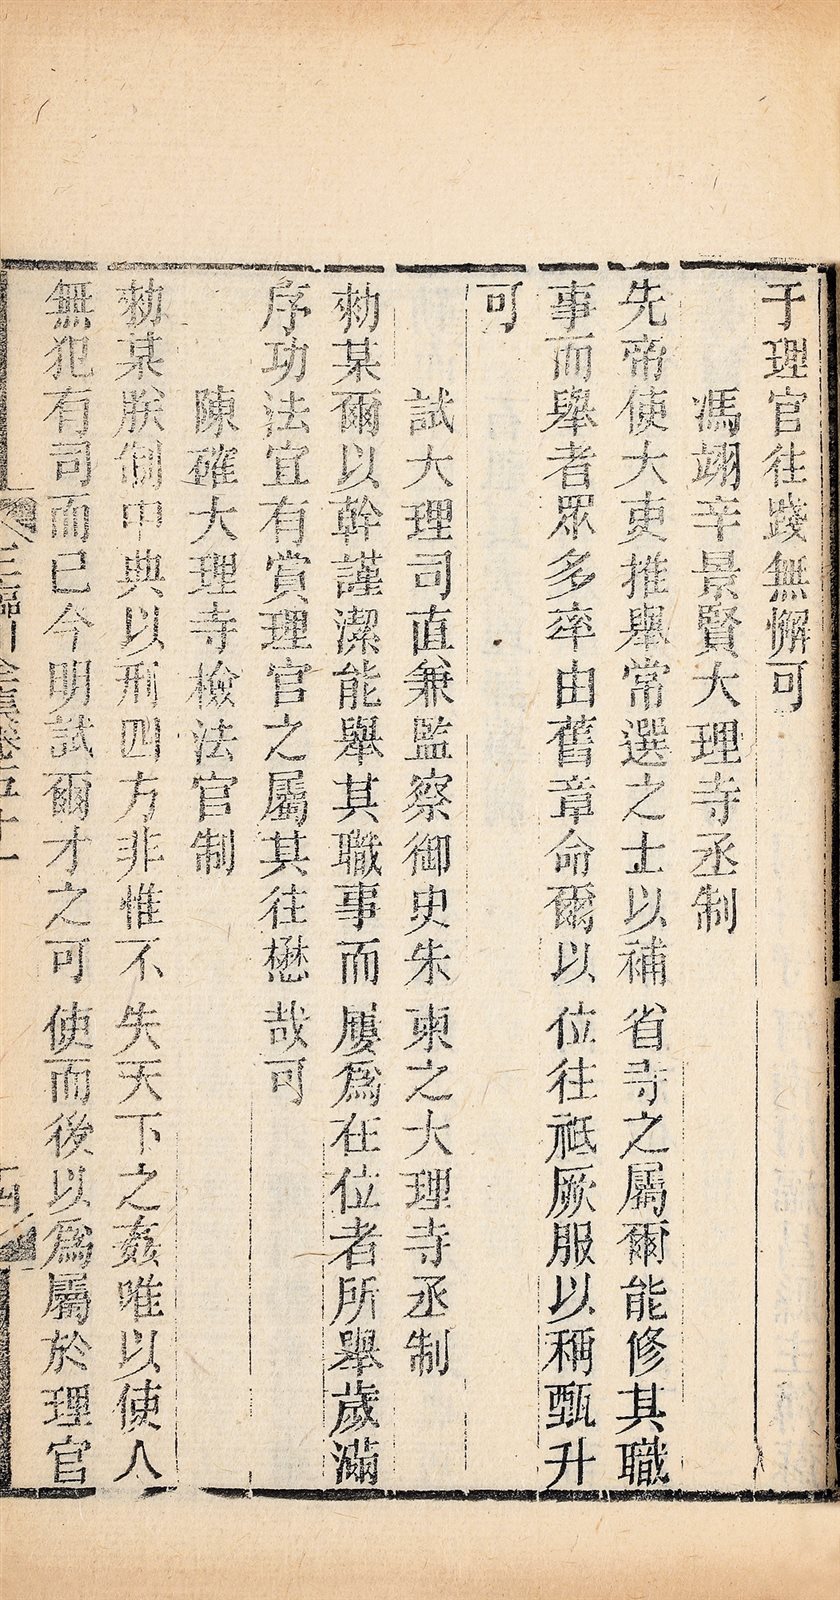 于理官往踐無懈可
馮翊辛景賢大理寺丞制
先帝使大吏推舉常選之士以補省寺之屬爾能修其職
事而舉者眾多率由舊章命爾以位往祗厥服以稱甄升
可
試大理司直兼監察御史朱東之大理寺丞制
勑某爾以幹謹潔能舉其職事而屢爲在位者所舉歲滿
序功法宜有賞理官之屬其往懋哉可
陳確大理寺檢法官制
勑某朕制中典以刑四方非惟不失天下之姦唯以使人
無犯有司而已今明試爾才之可使而後以爲屬於理官
王臨川全集卷五十一
四